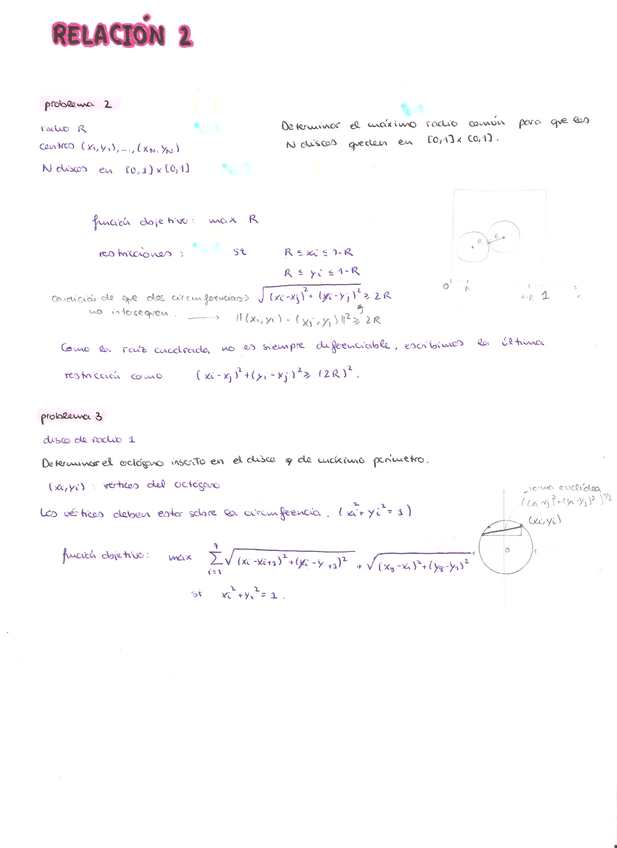 RELACIÓN 2
problema 2
radio R
centros (x₁,y₁),...,(x_N,y_N)
N discos en [0,1]x[0,1]
Determinar el máximo radio común para que los
N discos queden en [0,1]x[0,1].
función objetivo: max R
restricciones: st R ≤ xi ≤ 1-R
R ≤ yi ≤ 1-R
condición de que dos circunferencias → √(xi-xj)²+(yi-yj)² ≥ 2R
no intersequen. → ||(xi,yi) - (xj,yj)||² ≥ 2R
R R
0 R 1-R 1
Como la raíz cuadrada no es siempre diferenciable, escribimos la última
restricción como (xi-xj)²+(yi-yj)² ≥ (2R)².
problema 3
disco de radio 1
Determinar el octógono inscrito en el disco y de máximo perímetro.
(xi,yi) : vértices del octógono
Los vértices deben estar sobre la circunferencia. (xi²+yi²=1)
norma euclídea
((xi-xj)²+(yi-yj)²)^1/2
(xi,yi)
0 1
función objetivo: max Σ_{i=1}^{7} √(xi-xi+1)²+(yi-y+1)² + √(x8-x1)²+(y8-y1)²
st xi²+yi²=1.